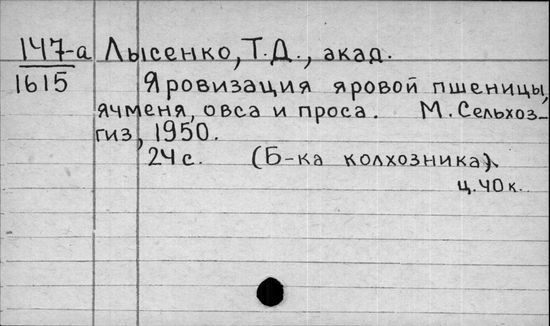 147-а Лысенко, Т.Д., акад.
1615 Яровизация яровой пшеницы,
ячменя, овса и проса. М. Сельхоз-
гиз, 1950.
24 с. (Б-ка колхозника).
ц. 40 к.